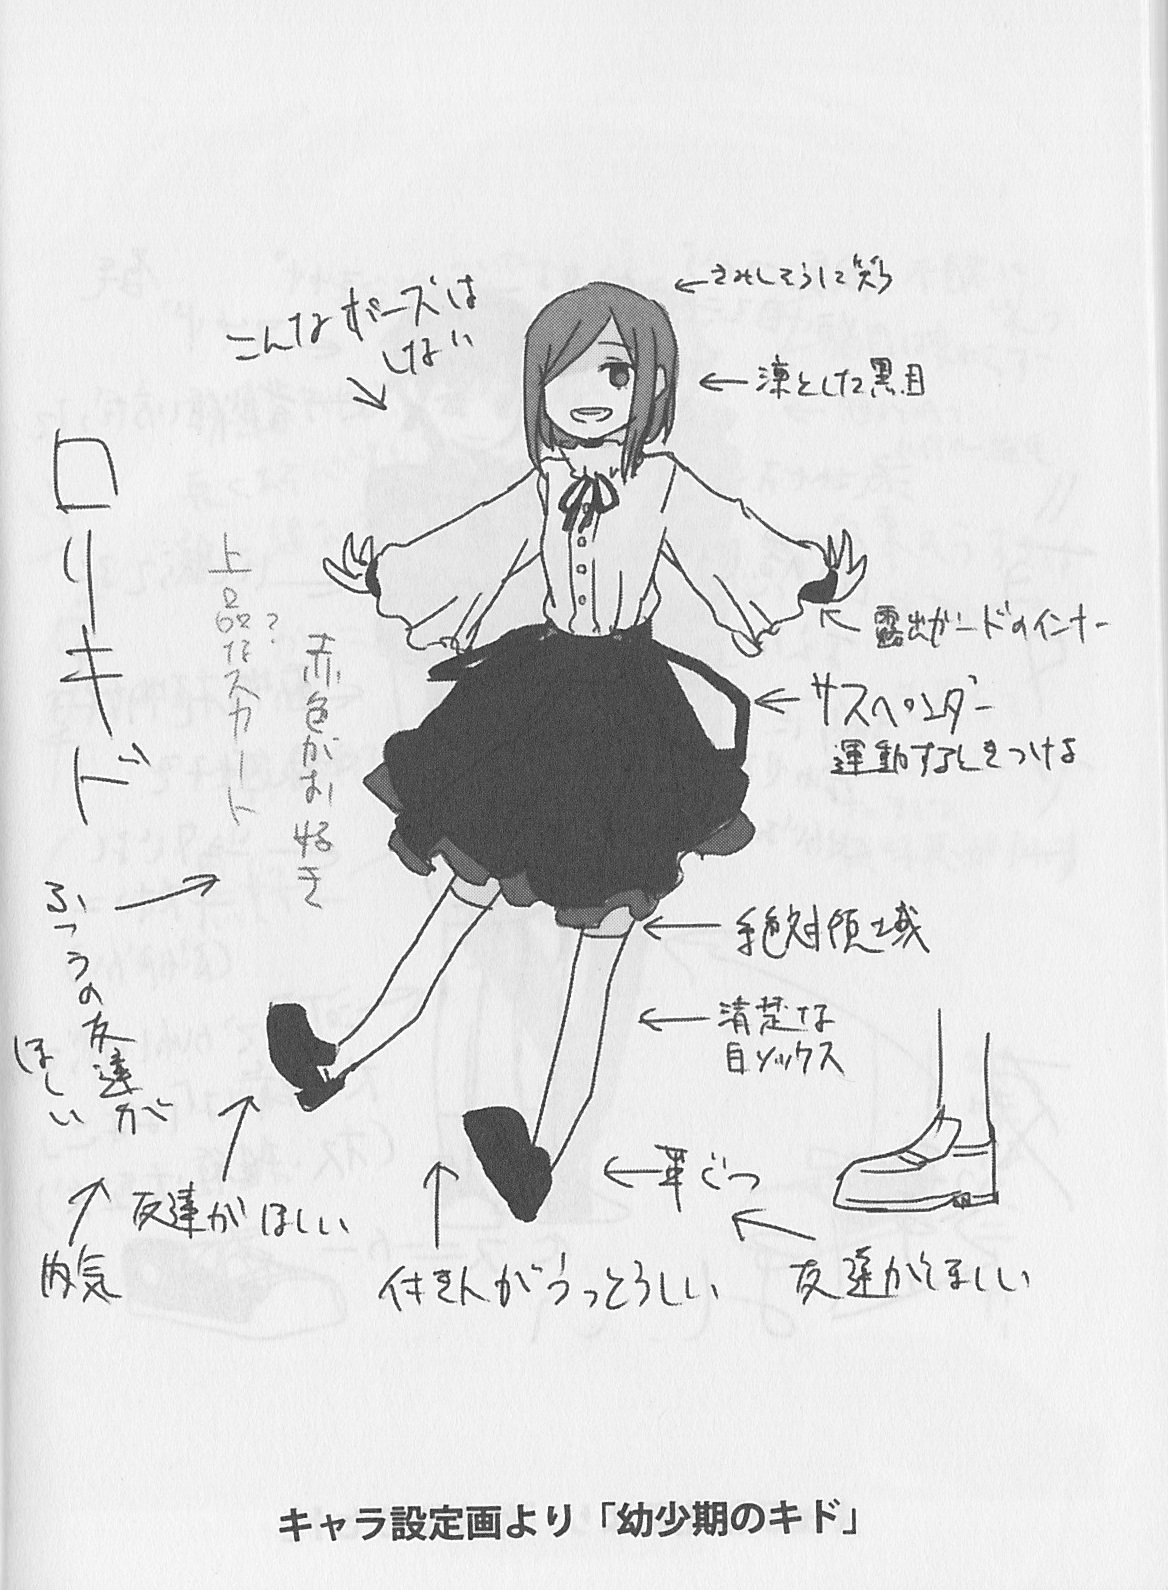 さみしそうに笑う
こんなポーズは
しない
凛とした黒目
ロリキド
上品なスカート
?
赤色がお好き
露出ガードのインナー
サスペンダー
運動するときつける
ふつうの友達が
ほしい
絶対領域
清楚な
白ソックス
革ぐつ
友達がほしい
内気
付き人がうっとうしい
友達がほしい
キャラ設定画より「幼少期のキド」